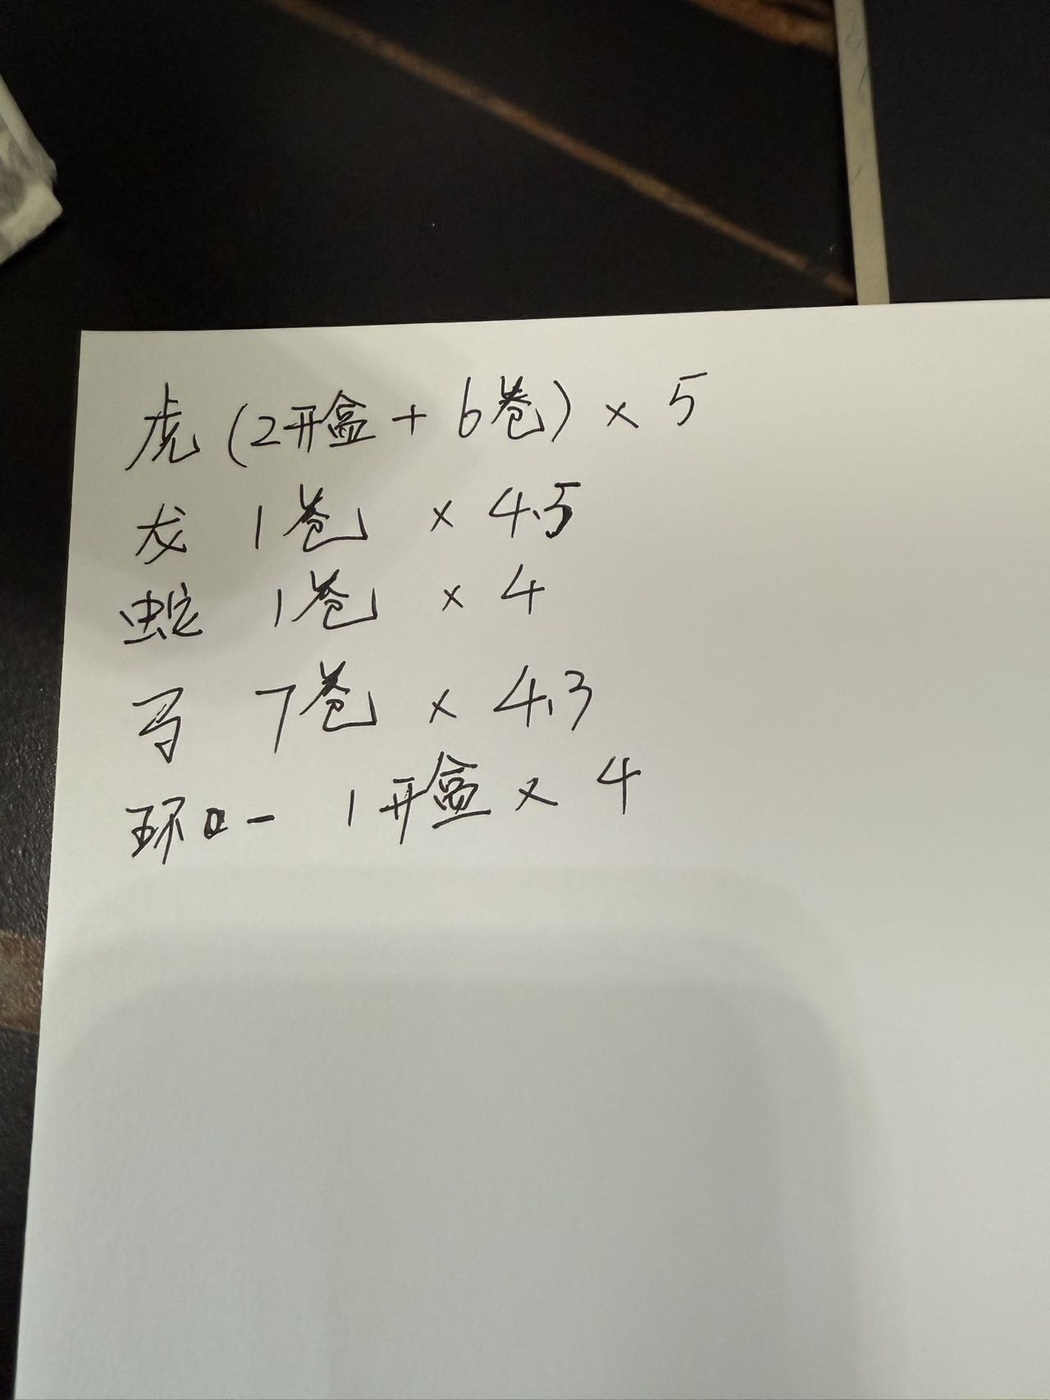 虎(2开盒+6卷)×5
龙 1卷 ×4.5
蛇 1卷 ×4
马 7卷 ×4.3
环 - 1开盒×4